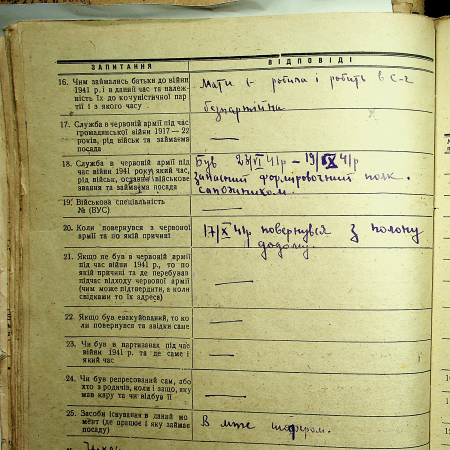 ЗАПИТАННЯ
ВІДПОВІДІ
16. Чим займались батьки до війни
1941 р. і в даний час та належ-
ність їх до комуністичної пар-
тії і з якого часу
Мати – робила і робить в с-г
безпартійна
17. Служба в червоній армії під час
громадянської війни 1917 — 22
років, рід військ та займаєма
посада
—
18. Служба в червоній армії під
час війни 1941 року, який час,
рід військ, останнє військове
звання та займаєма посада
Був 23/VI 41р – 19/IX 41р
запасний формировочний полк.
сапожником.
19. Військова спеціальність
№ (ВУС)
—
20. Коли повернувся з червоної
армії та по якій причині
17/X 41р повернувся з полону
додому.
21. Якщо не був в червоній армії
під час війни 1941 р., то по
якій причині та де перебував
підчас відходу червоної армії
(чим може підтвердити, а коли
свідками то їх адреса)
—
22. Якщо був евакуйований, то ко-
ли повернувся та звідки саме
—
23. Чи був в партизанах під час
війни 1941 р. та де саме і
який час
—
24. Чи був репресований сам, або
хто з родичів, коли і защо, яку
мав кару та чи відбув її
—
25. Засоби існування в даний мо-
мент (де працює і яку займає
посаду)
В шофером.